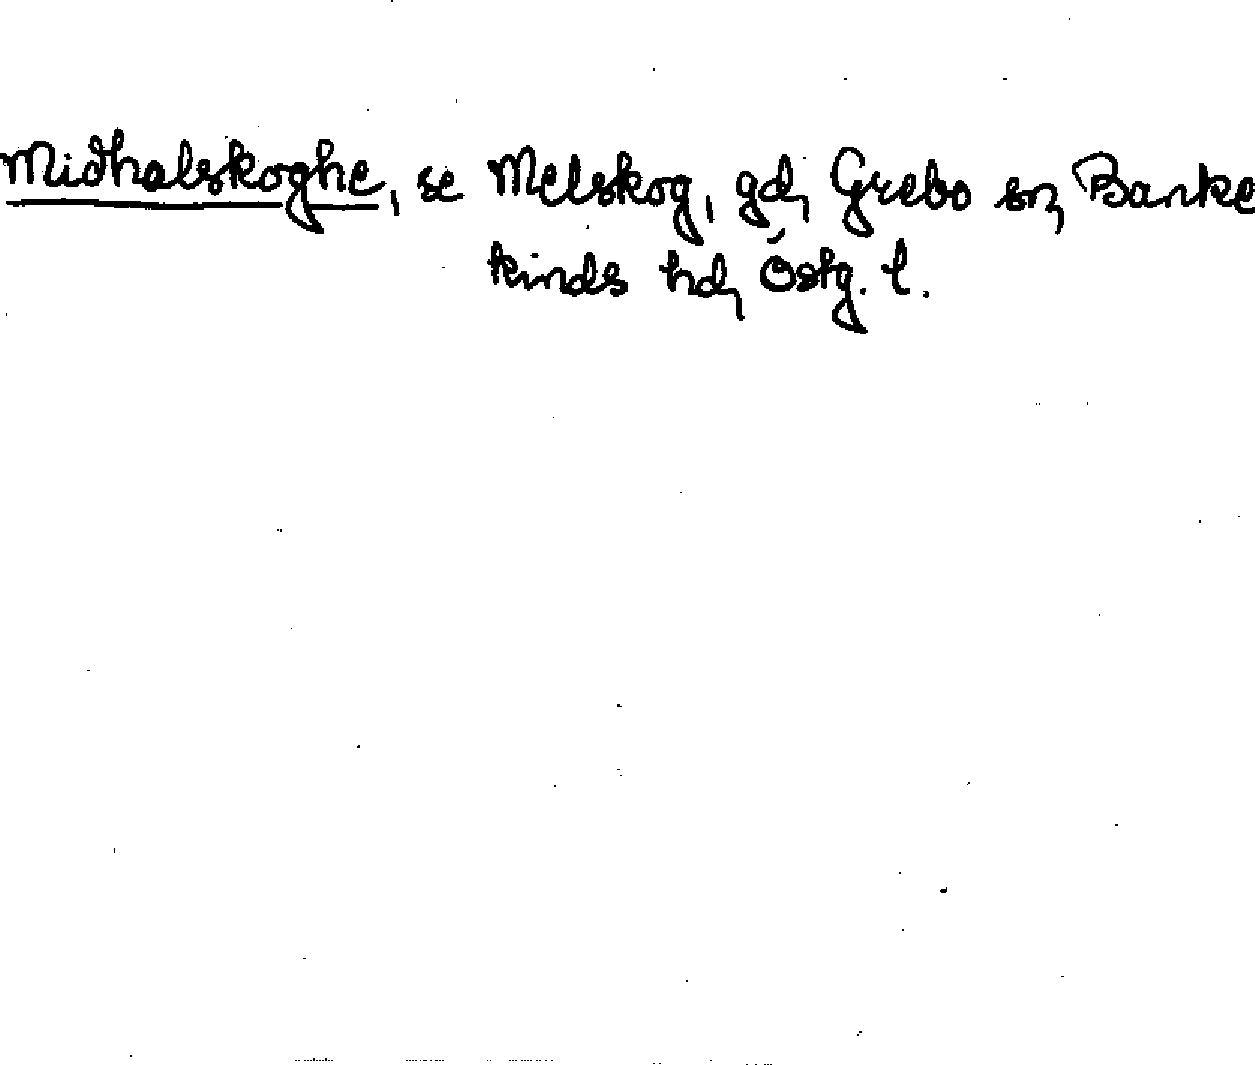 Midhalskoghe, se Melskog, gd, Grebo sn, Banke
kinds hd, Östg. l.